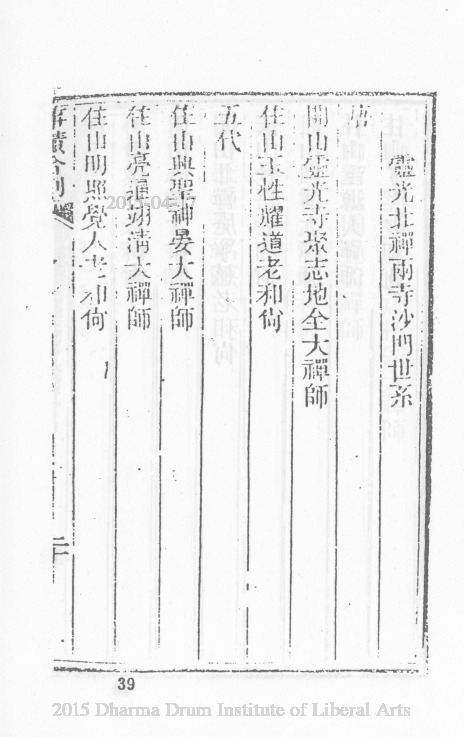 靈光北禪兩寺沙門世系
唐
開山靈光寺聚志地全大禪師
住山玉性耀道老和尙
五代
住山興聖神晏大禪師
住山亮通翊淸大禪師
住山明照覺人老和尙
合刻
二十
39
2015 Dharma Drum Institute of Liberal Arts